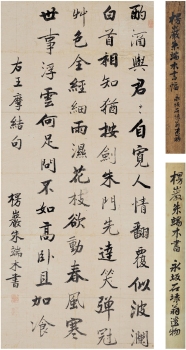 酌酒與君君自寛人情翻覆似波瀾
白首相知猶按劍朱門先達笑彈冠
艸色全經細雨濕花枝欲動春風寒
世事浮雲何足問不如高臥且加飡
右王摩詰句
楞巖朱端木書
楞巖朱端木書
楞巖朱端木書 永坂石埭翁遺物